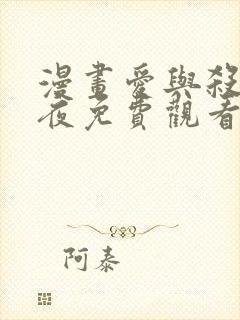 漫畫愛與殺
夜免費觀看
阿泰